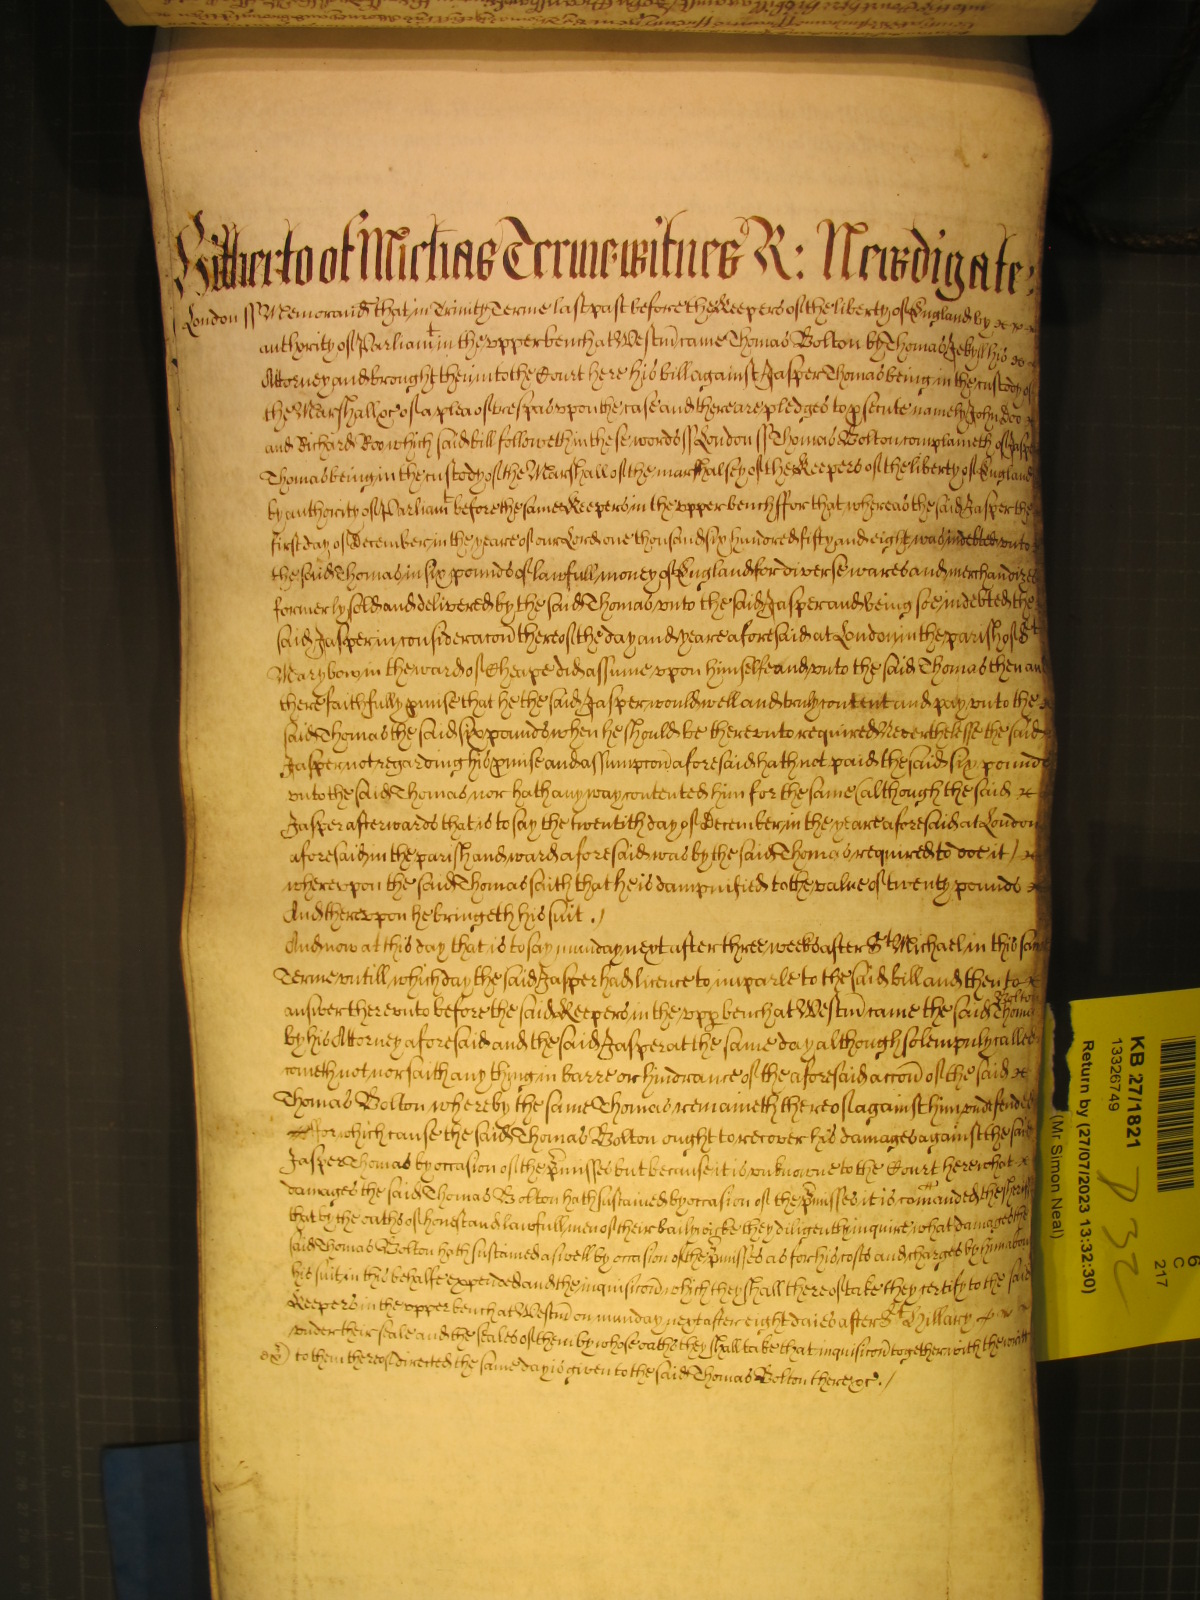 Hitherto of Michas Terme witnes R: Newdigate:
London ss Memorand That in Trinity Terme last past before the Keepers of the liberty of England by
authority of Parliamt in the upper bench at Westm came Thomas Bolton by Thomas Jekyll his
Attorney and brought then into the Court here his bill against Jasper Thomas being in the custody of
the Marshall &c of a plea of trespas upon the case and there are pledges to psecute namely John Doo
and Richard Roo which said bill followeth in these words ss London ss Thomas Bolton complaineth of Jasper
Thomas being in the custody of the Marshall of the marshalsey of the Keepers of the liberty of England
by authority of Parliamt before the same Keepers in the upper bench ffor that whereas the said Jasper the
first day of December in the yeare of our Lord one thousand six hundred fifty and eight was indebted unto
the said Thomas in six pounds of lawfull money of England for diverse wares and merchandizes
formerly sold and delivered by the said Thomas unto the said Jasper and being soe indebted the
said Jasper in consideracon thereof the day and yeare aforesaid at London in the parish of St
Mary bow in the ward of Cheape did assume upon himselfe and unto the said Thomas then and
there faithfully pmise that he the said Jasper would well and truly content and pay unto the
said Thomas the said six pounds when he should be thereunto required Neverthelesse the said
Jasper not regarding his pmise and assumpcon aforesaid hath not paid the said six pounds
unto the said Thomas nor hath any way contented him for the same (although the said
Jasper afterwards that is to say the twentith day of December in the yeare aforesaid at London
aforesaid in the parish and ward aforesaid was by the said Thomas required to doe it)
whereupon the said Thomas saith that he is dampnified to the value of twenty pounds
And thereupon he bringeth his suit ./
And now at this day that is to say munday next after three weeks after St Michael in this same
Terme untill which day the said Jasper had licence to imparle to the said bill and then to
answer thereunto before the said Keepers in the upp bench at Westm came the said Thomas Bolton
by his Attorney aforesaid and the said Jasper at the same day although solempnly called
cometh not nor saith any thing in barre or hindrance of the aforesaid accon of the said
Thomas Bolton whereby the same Thomas remaineth thereof against him undefended
ffor which cause the said Thomas Bolton ought to recover his damages against the said
Jasper Thomas by occasion of the pmisses but because it is unknowne to the Court here what
damages the said Thomas Bolton hath sustained by occasion of the pmisses it is comanded the sheriffs
that by the oaths of honest and lawfull men of their bailywicke they diligently inquire what damages the
said Thomas Bolton hath sustained aswell by occasion of the pmisses as for his costs and charges by him about
his suit in this behalfe expended and the inquisicon which they shall thereof take they certify to the said
Keepers in the upper bench at Westm on munday next after eight daies after St Hillary
under their seale and the seales of them by whose oaths they shall take that inquisicon together with the writt
to them thereof directed the same day is given to the said Thomas Bolton there &c ./
KB 27/1821
13326749
Return by (27/07/2023 13:32:30)
(Mr Simon Neal)
6
C
217
P 32